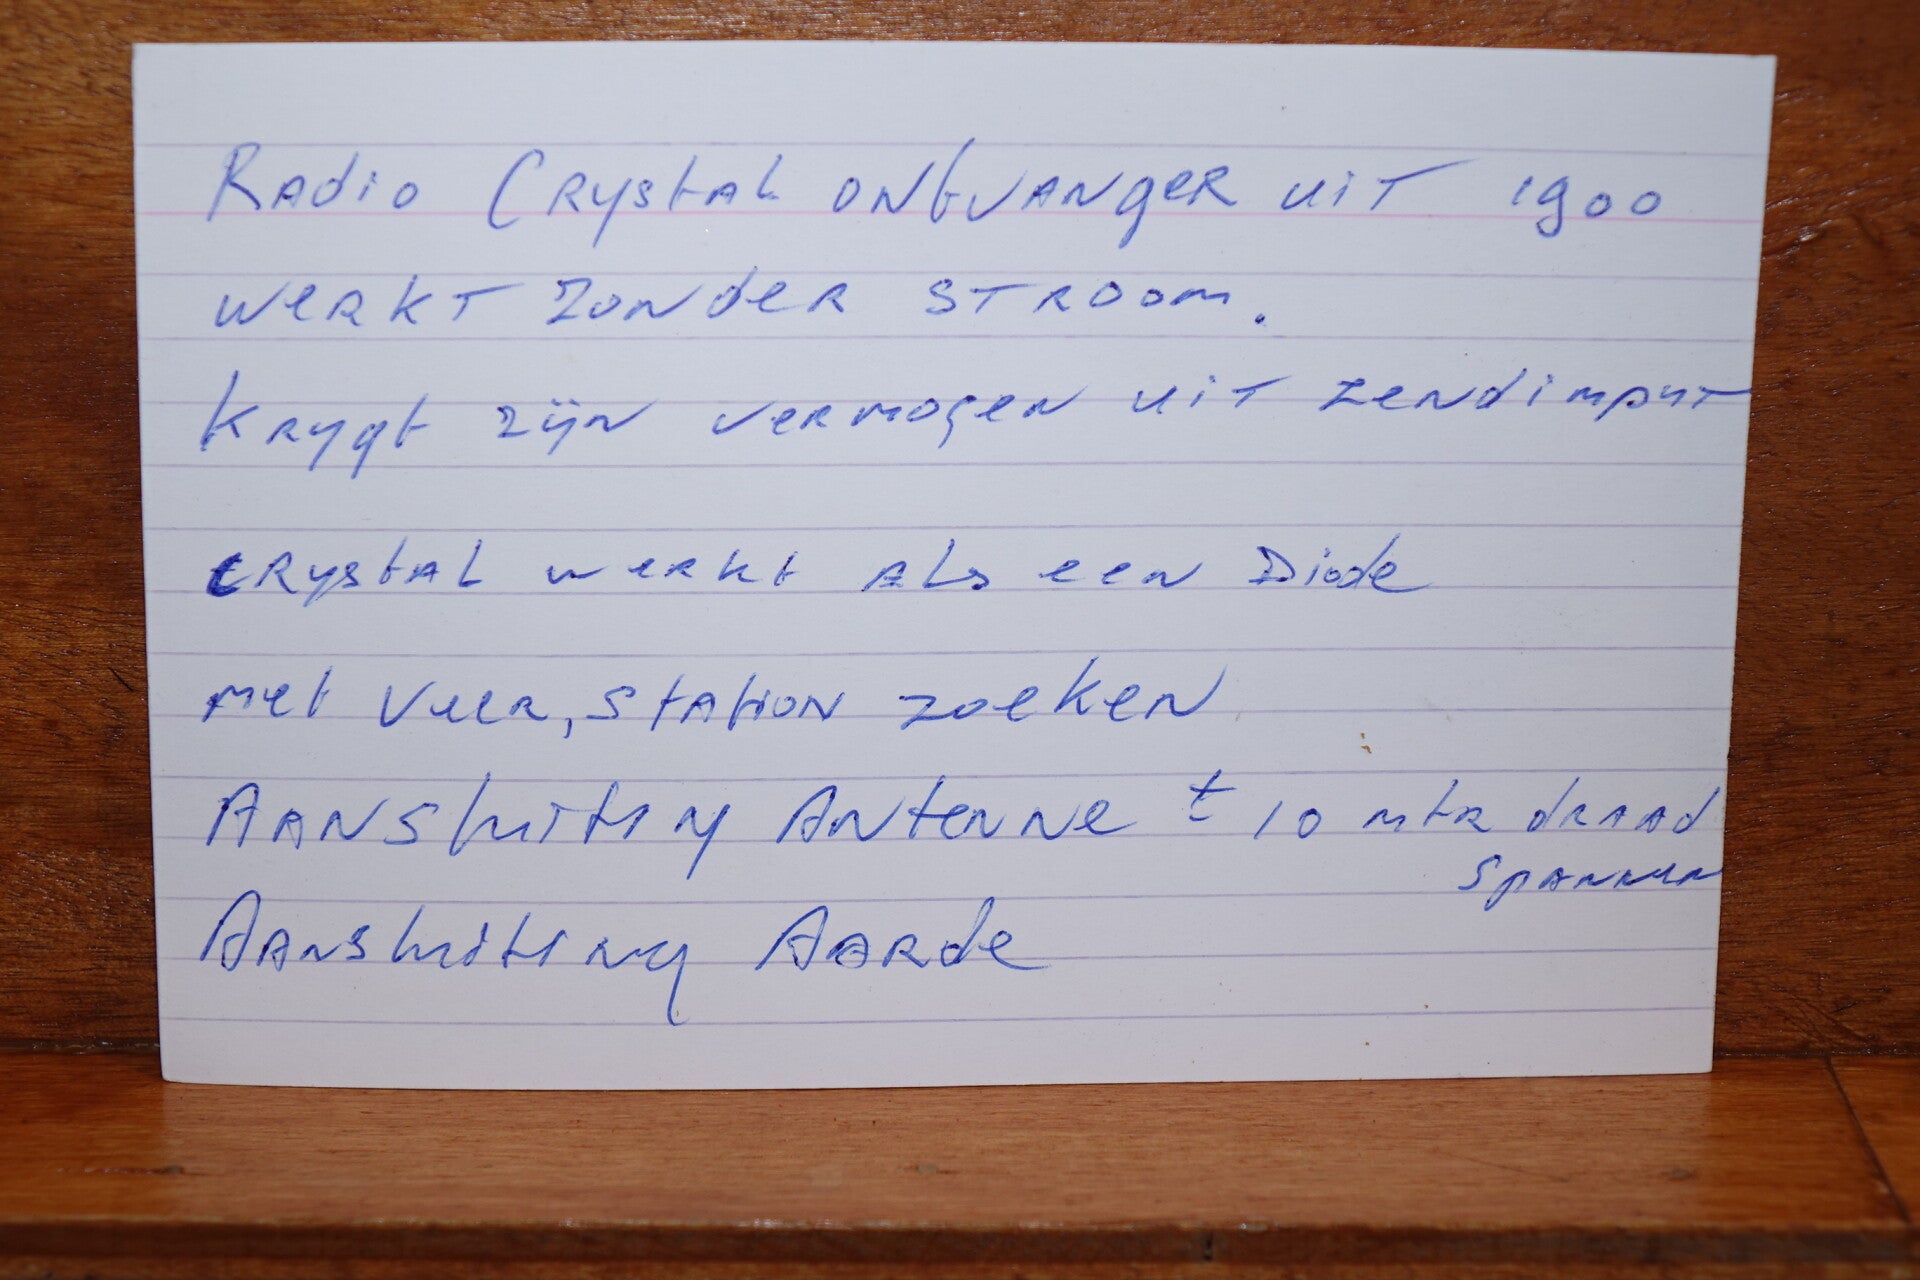 Radio Crystal ontvanger uit 1900
werkt zonder stroom.
Krygt zijn vermogen uit zendimput
Crystal werkt als een Diode
met veer, station zoeken
Aansluiting Antenne ± 10 mtr draad
spannen
Aansluiting Aarde